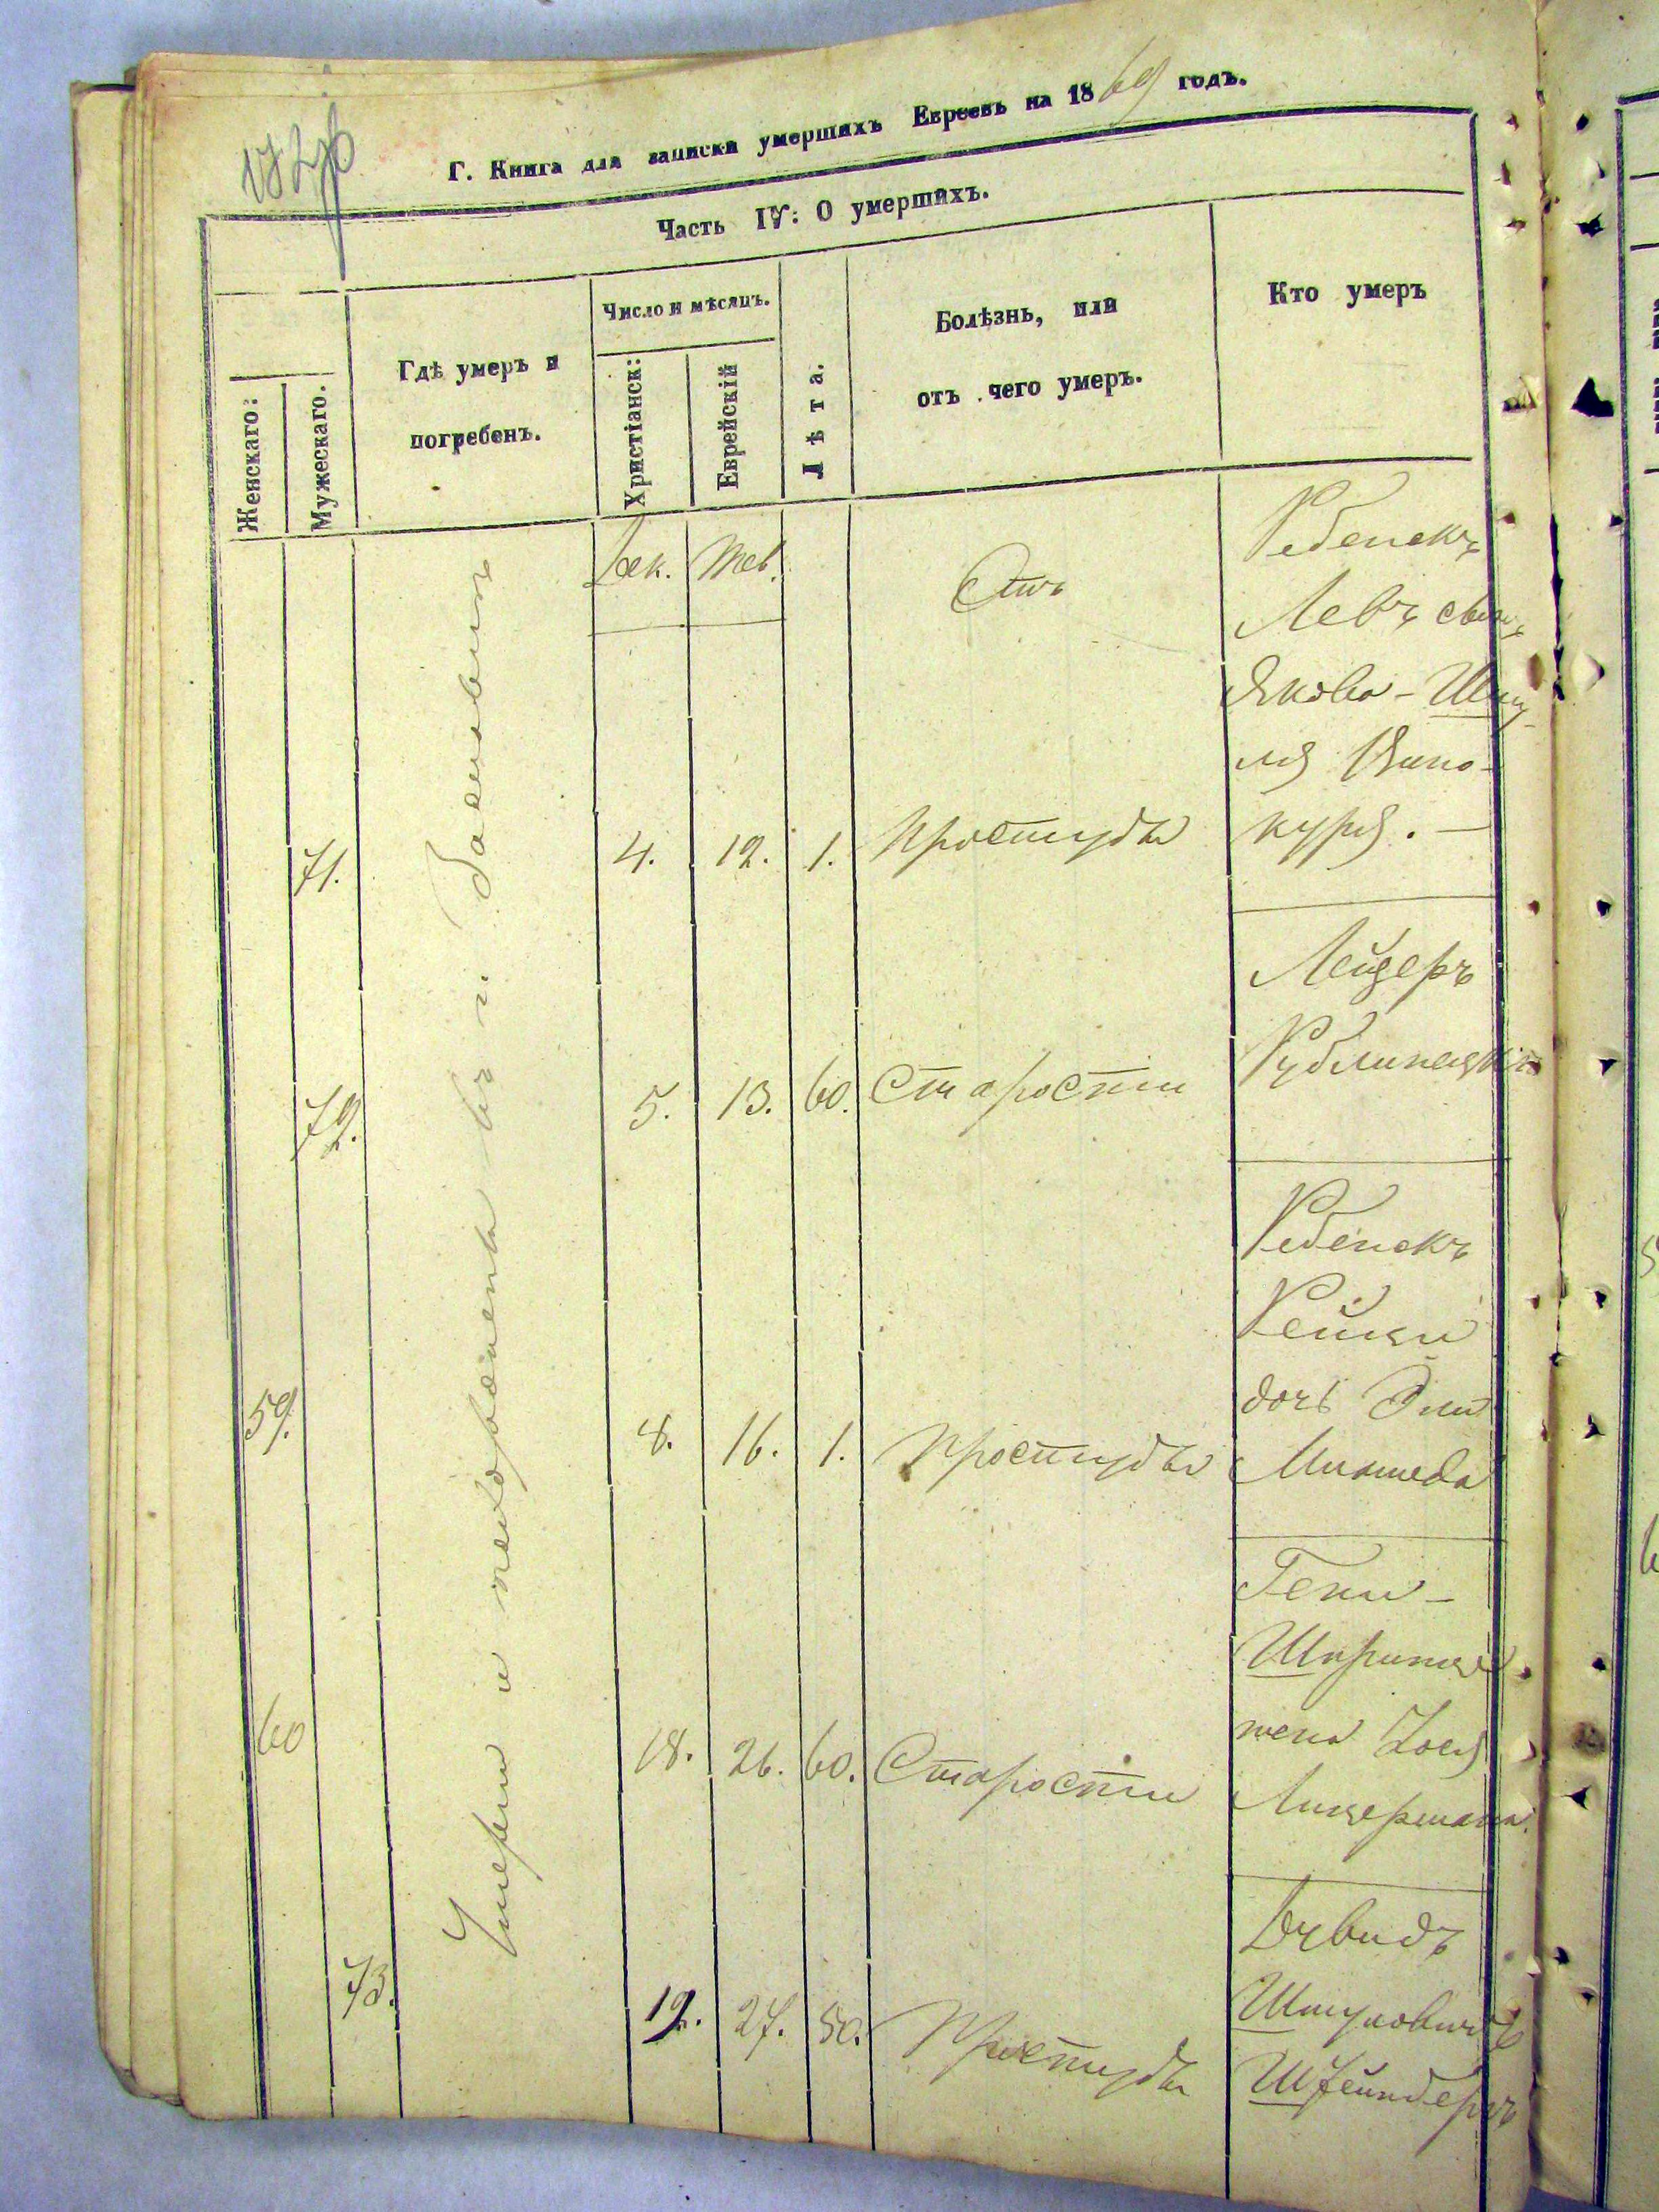 Г. Книга для записки умершихъ Евреевъ на 1869 годъ.
Часть IV: О умершихъ.
Женскаго:
Мужескаго.
Гдѣ умеръ и
погребенъ.
Число и мѣсяцъ.
Христіанск:
Еврейскій
Лѣта.
Болѣзнь, или
отъ чего умеръ.
Кто умеръ
Дек. Тев.
Умерли и погребены въ г.
Отъ
Ребенокъ
Левъ сынъ
Якова-Шму-
ля Вино-
71. 4. 12. 1. простуды
кура. —
Лейзеръ
72. 5. 13. 60. Старости
Ребенокъ
Рейзи
дочь
59. 8. 16. 1. простуды
Гени-
Шпринца
жена
60 18. 26. 60. Старости
Давидъ
73. 19. 27. 50. Простуды
Шмулевичъ
Штейнбергъ